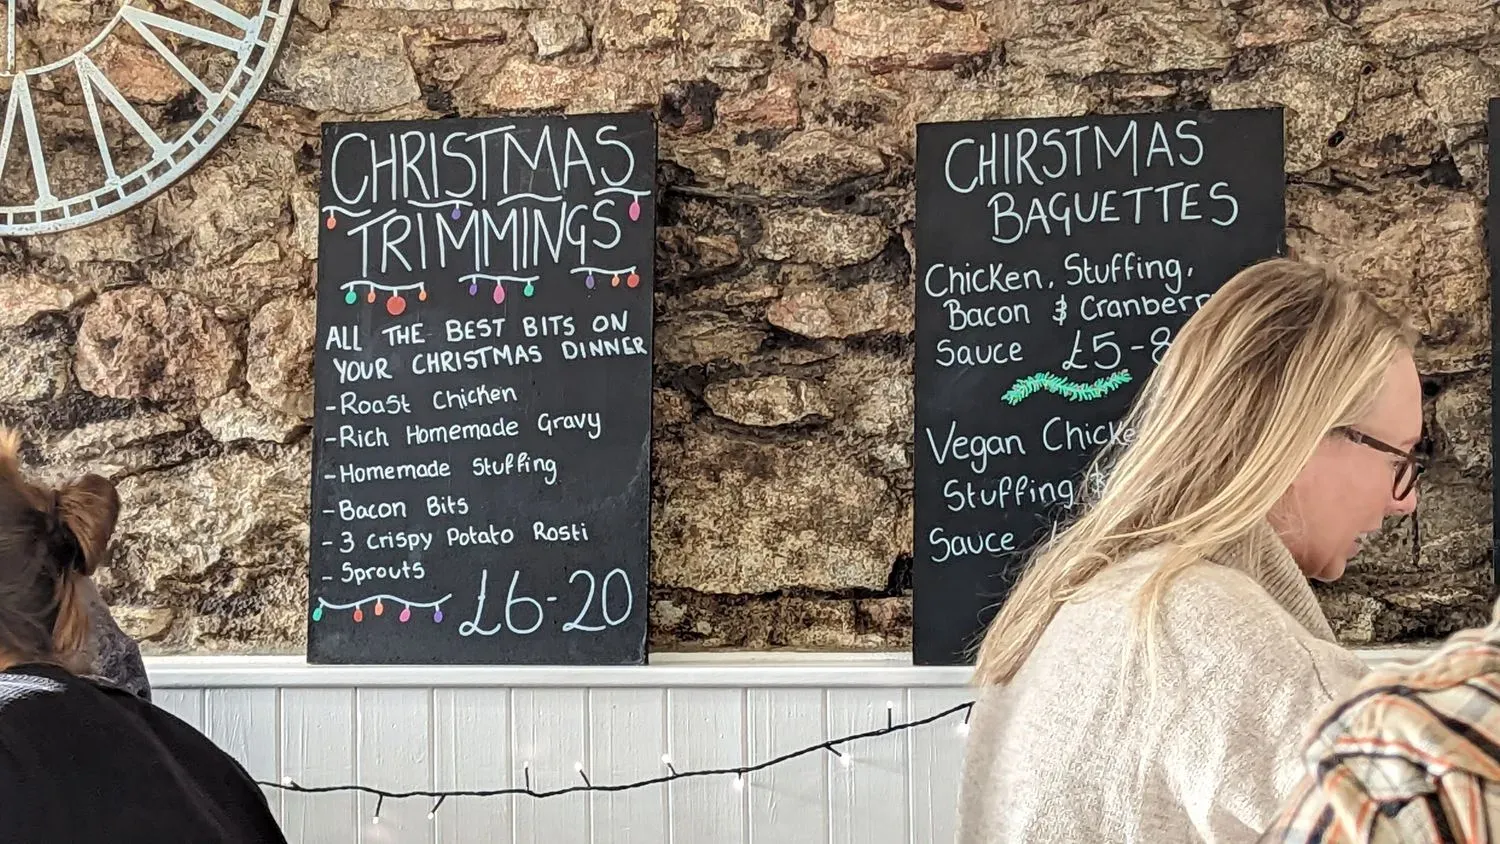 CHRISTMAS
TRIMMINGS
ALL THE BEST BITS ON
YOUR CHRISTMAS DINNER
-Roast Chicken
-Rich Homemade Gravy
-Homemade Stuffing
-Bacon Bits
- 3 crispy Potato Rosti
- Sprouts
£6-20
CHIRSTMAS
BAGUETTES
Chicken, Stuffing,
Bacon & Cranberr
Sauce £5-8
Vegan Chicke
Stuffing &
Sauce